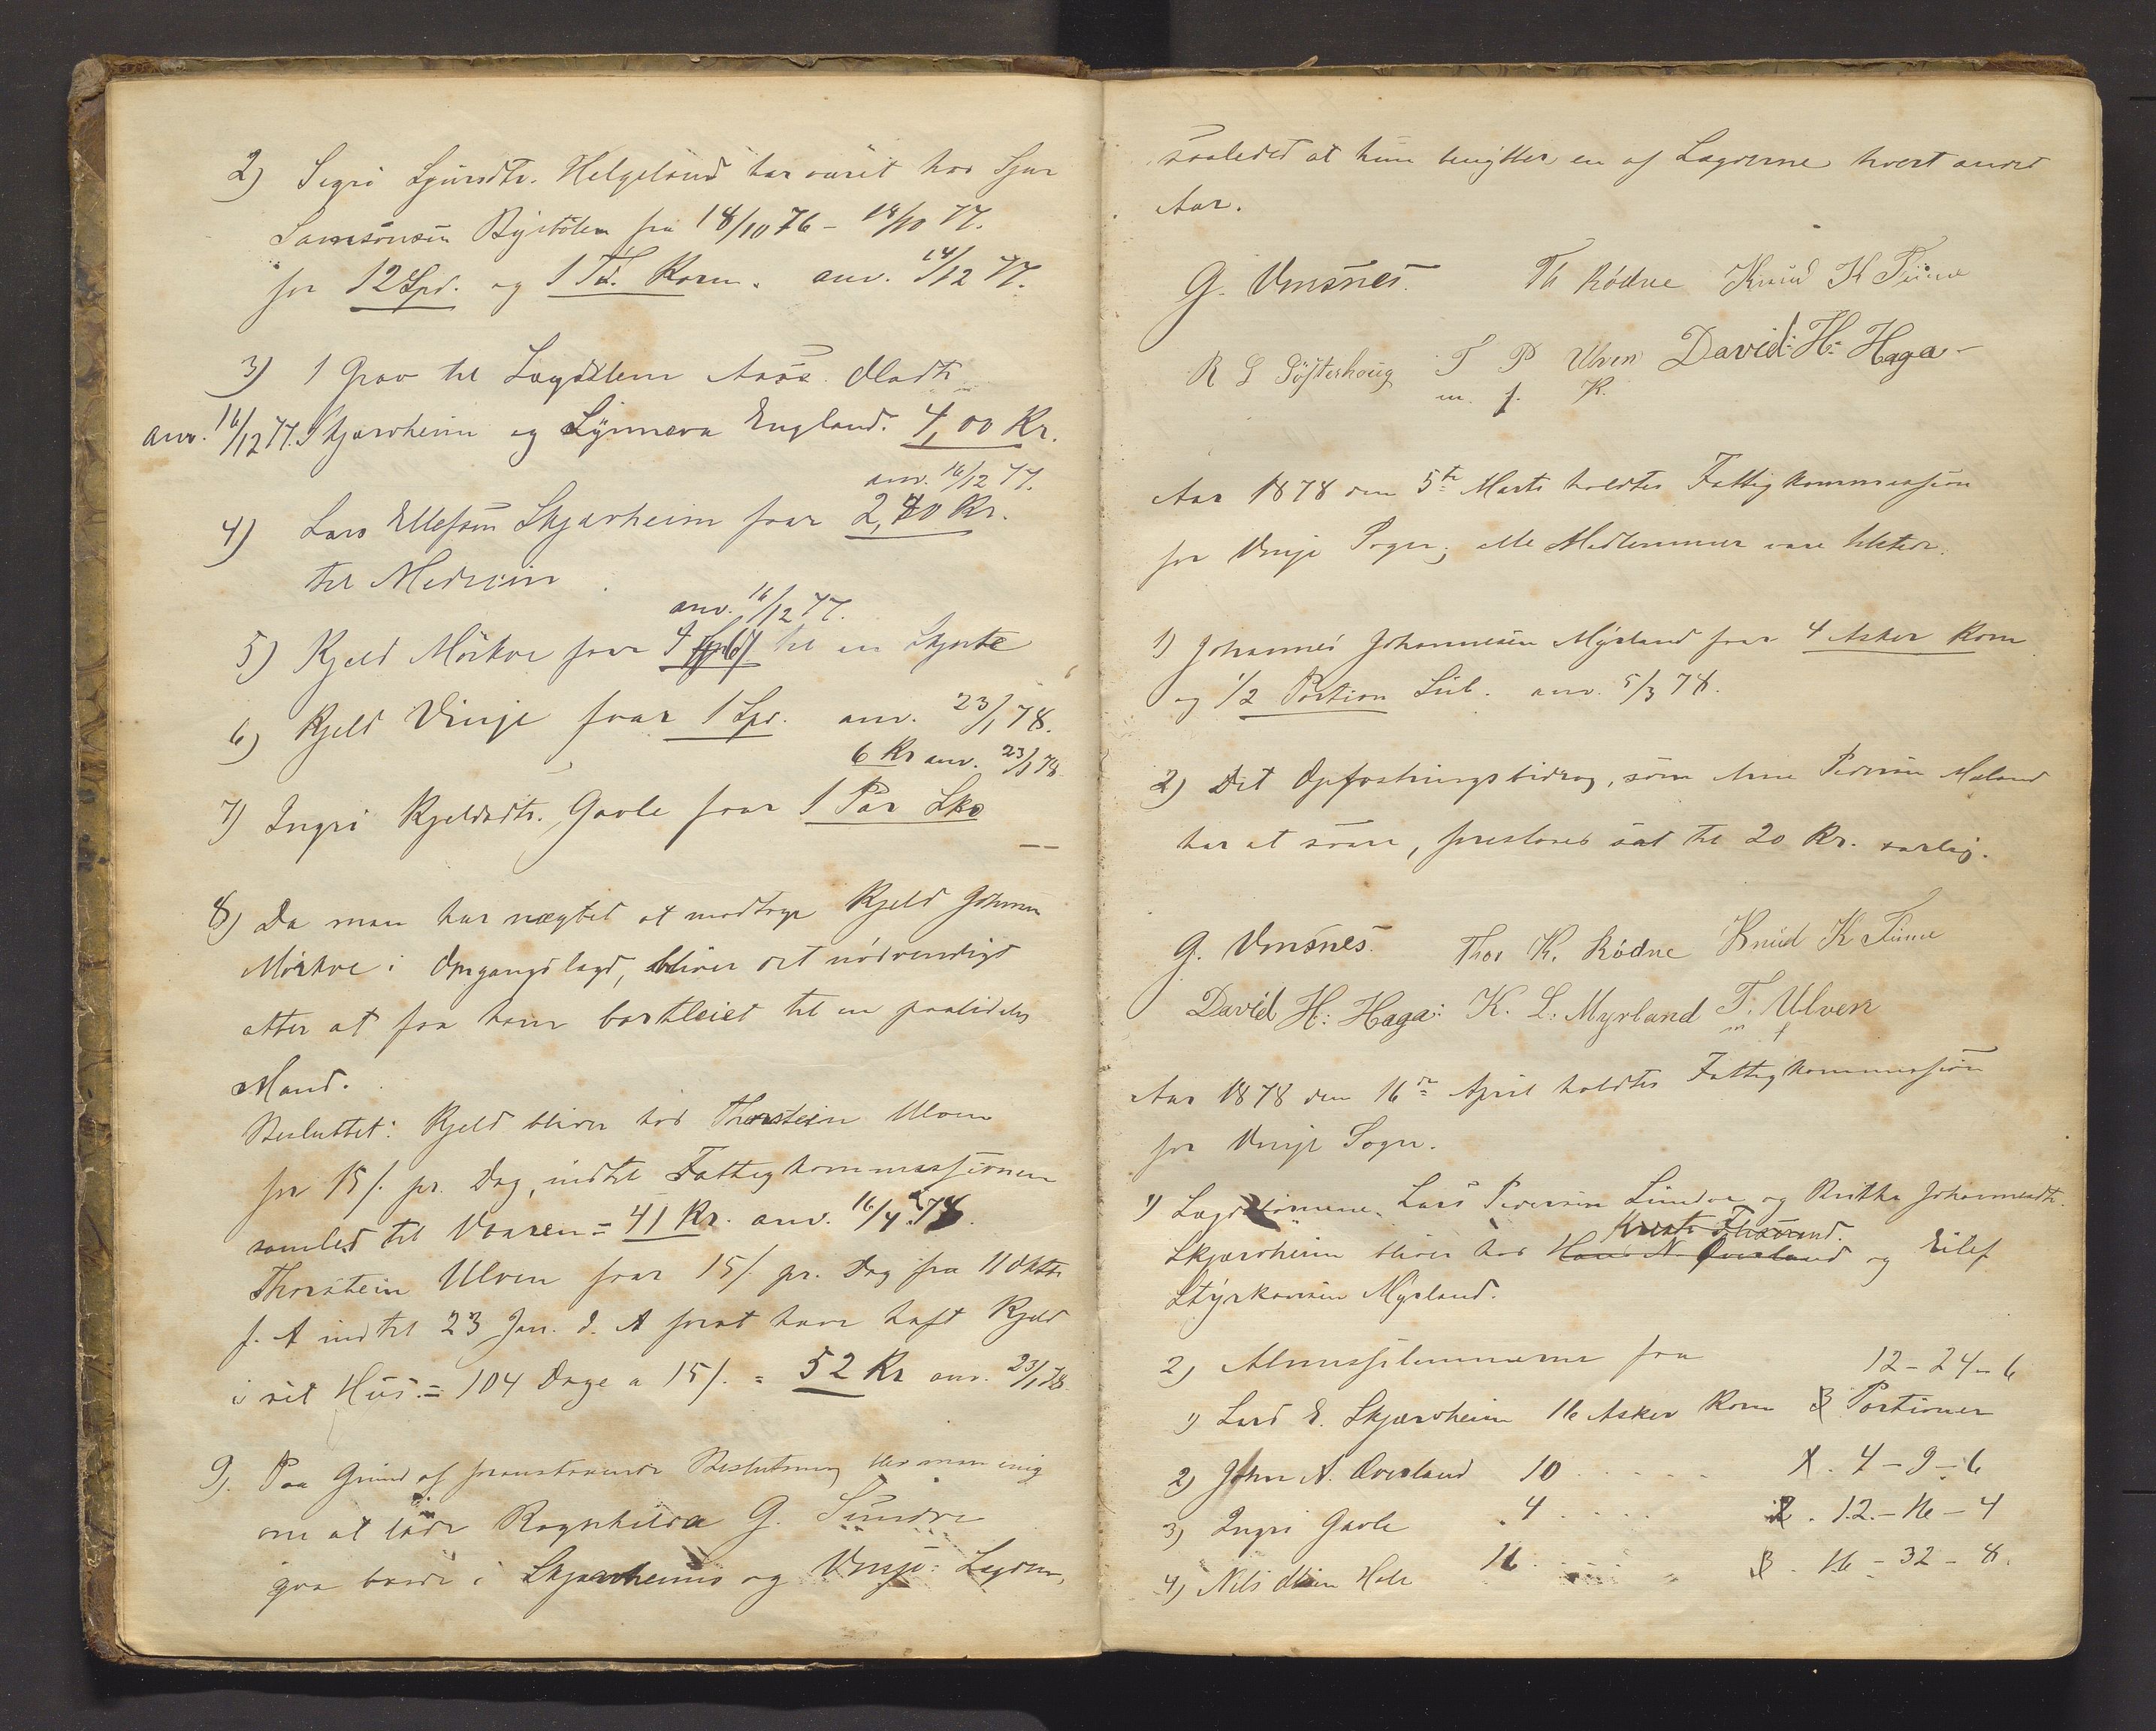 2) Sigri Sjursdtr. Helgeland har været hos Sjur
Samsonsen Bystölen fra 18/10 76 - 18/10 77.
for 12 Spd. og 1 Td. Korn. anv. 14/12 77.
3) 1 Grav til Lægdslem Oladtr
anv. 16/12 77. Skjærvheim og England. 4,00 Kr.
anv. 16/12 77.
4) Lars Ellefsen Skjærheim faar 2,40 Kr.
til Medicin
anv. 16/12 77.
5) Kjeld Mörkve faar 4 til en Skjorte
6) Kjeld Vinje faar 1 Spd. anv. 23/1 78.
6 Kr anv. 23/1 78
7) Ingri Kjeldsdtr. Gavle faar 1 Par Sko
8) Da man har nægtet at modtage Kjeld Johnsen
Mörkve i Omgangslægd, bliver det nödvendigt
atter at faa ham bortleiet til en paalidelig
Mand.
Besluttet: Kjeld bliver hos Thorstein Ulven
for 15 /. pr. Dag, indtil Fattigkommissionen
samles til Vaaren = 41 Kr. anv. 16/4 78.
Thorstein Ulven faar 15 /. pr. Dag fra 11 Oktb
f. A indtil 23 Jan. d. A forat have haft Kjeld
i sit Hus. = 104 Dage a 15 /. = 52 Kr anv. 23/1 78.
9). Paa Grund af foranstaaende Beslutning blev man enig
om at lade Ragnhilda G. Sundve
gaa baade i Skjærvheims og Vinje Lægden,
saaledes at hun benytter en af Lægderne hvert andet
Aar.
G. Vinsnes. Th Rödne Knud K Finne
R S Göfterhoug T P Ulven David: H: Haga -
m. f. P.
Aar 1878 den 5te Marts holdtes Fattigkommission
for Vinje Sogn; alle Medlemmer vare tilstede.
1) Johannes Johannesen Myrland faar 4 Asker Korn
og 1/2 Portion Sul. anv. 5/3 78.
2) Det Opfostringsbidrag, som Arne Pedersen Mæland
har at svare, foreslaaes sat til 20 Kr. aarlig.
G. Vinsnes. Thor K. Rödne Knud K Finne
David H: Haga: K. L. Myrland T. Ulven
m f
Aar 1878 den 16de April holdtes Fattigkommission
for Vinje Sogn.
1) Lægdslemmerne Lars Pedersen Sundve og Britha Johannesdtr.
Skjærvheim bliver hos Hans N. Qverland og Eilef
Styrkorsen Myrland.
2) Almisselemmerne faa
12 - 24 - 6
1) Lars E. Skjærvheim 16 Asker Korn 3 Portioner
2) John A. Qverland 10 . . . . 1 . 4 - 9 - 6
3) Ingri Gavle 4 . . . . 2 . 12 - 16 - 4
4) Nils Olsen Hole 16 . . . . 3 . 16 - 32 - 8.